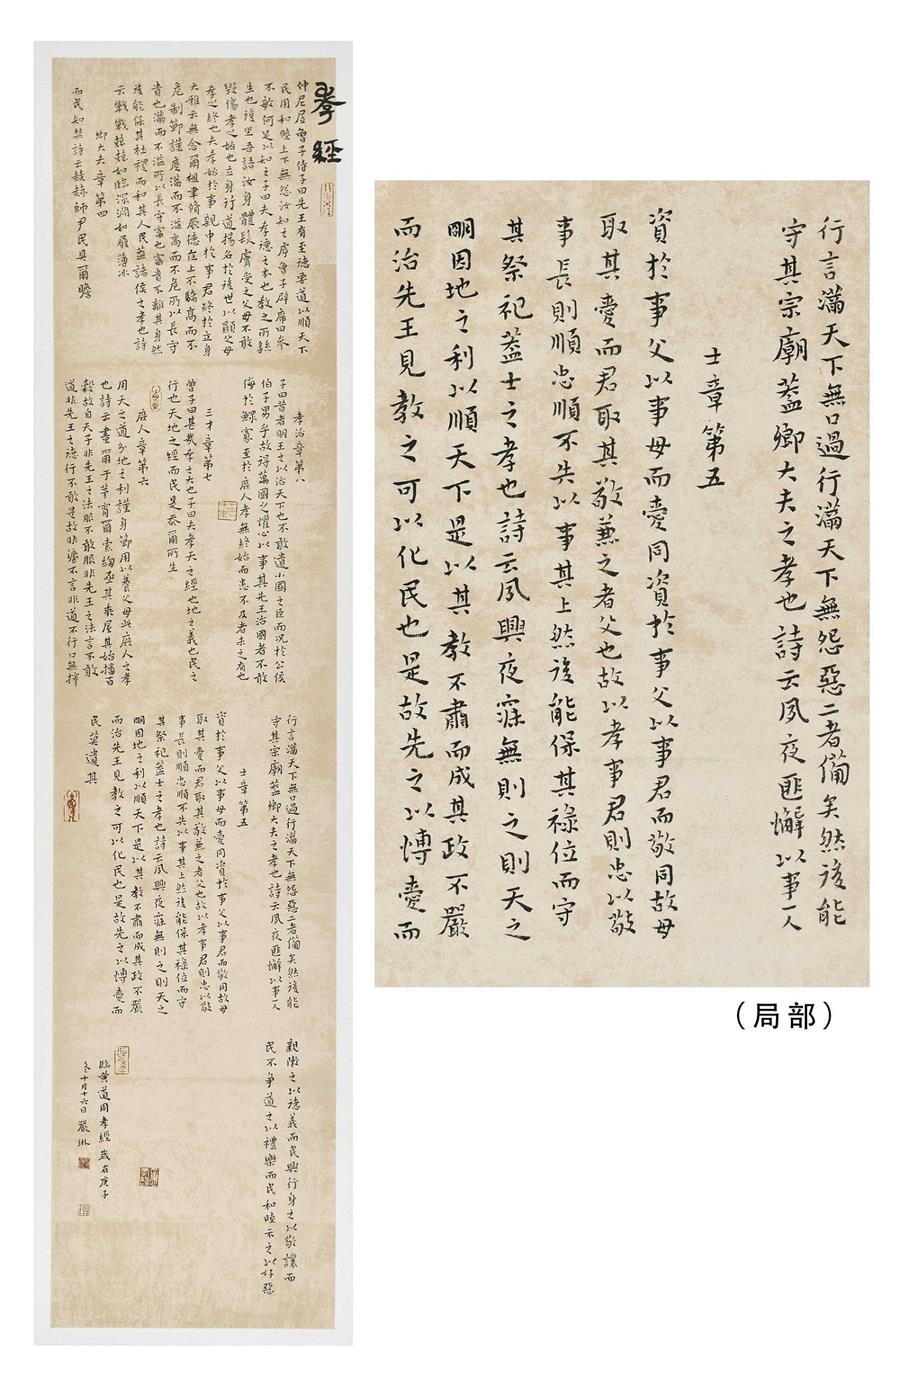 孝經
仲尼居曾子侍子曰先王有至德要道以順天下
民用和睦上下無怨汝知之虖曾子辟席曰參
不敏何足以知之子曰夫孝德之本也教之所繇
生也復坐吾語汝身體髮膚受之父母不敢
毀傷孝之始也立身行道揚名於後世以顯父母
孝之終也夫孝始於事親中於事君終於立身
大雅云無念爾祖聿脩厥德在上不驕高而不
危制節謹度滿而不溢高而不危所以長守
貴也滿而不溢所以長守富也富貴不離其身然
後能保其社稷而和其人民蓋諸侯之孝也詩
云戰戰兢兢如臨深淵如履薄冰
卿大夫章第四
而民知禁詩云赫赫師尹民具爾瞻
孝治章第八
子曰昔者明王之以治天下也不敢遺小國之臣而況於公侯
伯子男乎故得萬國之懽心以事其先王治國者不敢
侮於鰥寡至於庶人孝無終始而患不及者未之有也
三才章第七
曾子曰甚哉孝之大也子曰夫孝天之經也地之義也民之
行也天地之經而民是忝爾所生
庶人章第六
用天之道分地之利謹身節用以養父母此庶人之孝
也詩云晝爾于茅宵爾索綯亟其乘屋其始播百
穀故自天子非先王之法服不敢服非先王之法言不敢
道非先王之德行不敢是故非灋不言非道不行口無擇
行言滿天下無口過行滿天下無怨惡二者備矣然後能
守其宗廟蓋卿大夫之孝也詩云夙夜匪懈以事一人
士章第五
資於事父以事母而愛同資於事父以事君而敬同故母
取其愛而君取其敬兼之者父也故以孝事君則忠以敬
事長則順忠順不失以事其上然後能保其祿位而守
其祭祀蓋士之孝也詩云夙興夜寐無則之則天之
明因地之利以順天下是以其教不肅而成其政不嚴
而治先王見教之可以化民也是故先之以博愛而
民莫遺其
親陳之以德義而民興行身之以敬讓而
民不爭道之以禮樂而民和睦示之以好惡
臨黃道周孝經歲在庚子
冬十月十六日嚴琳
行言滿天下無口過行滿天下無怨惡二者備矣然後能
守其宗廟蓋卿大夫之孝也詩云夙夜匪懈以事一人
士章第五
資於事父以事母而愛同資於事父以事君而敬同故母
取其愛而君取其敬兼之者父也故以孝事君則忠以敬
事長則順忠順不失以事其上然後能保其祿位而守
其祭祀蓋士之孝也詩云夙興夜寐無則之則天之
明因地之利以順天下是以其教不肅而成其政不嚴
而治先王見教之可以化民也是故先之以博愛而
（局部）